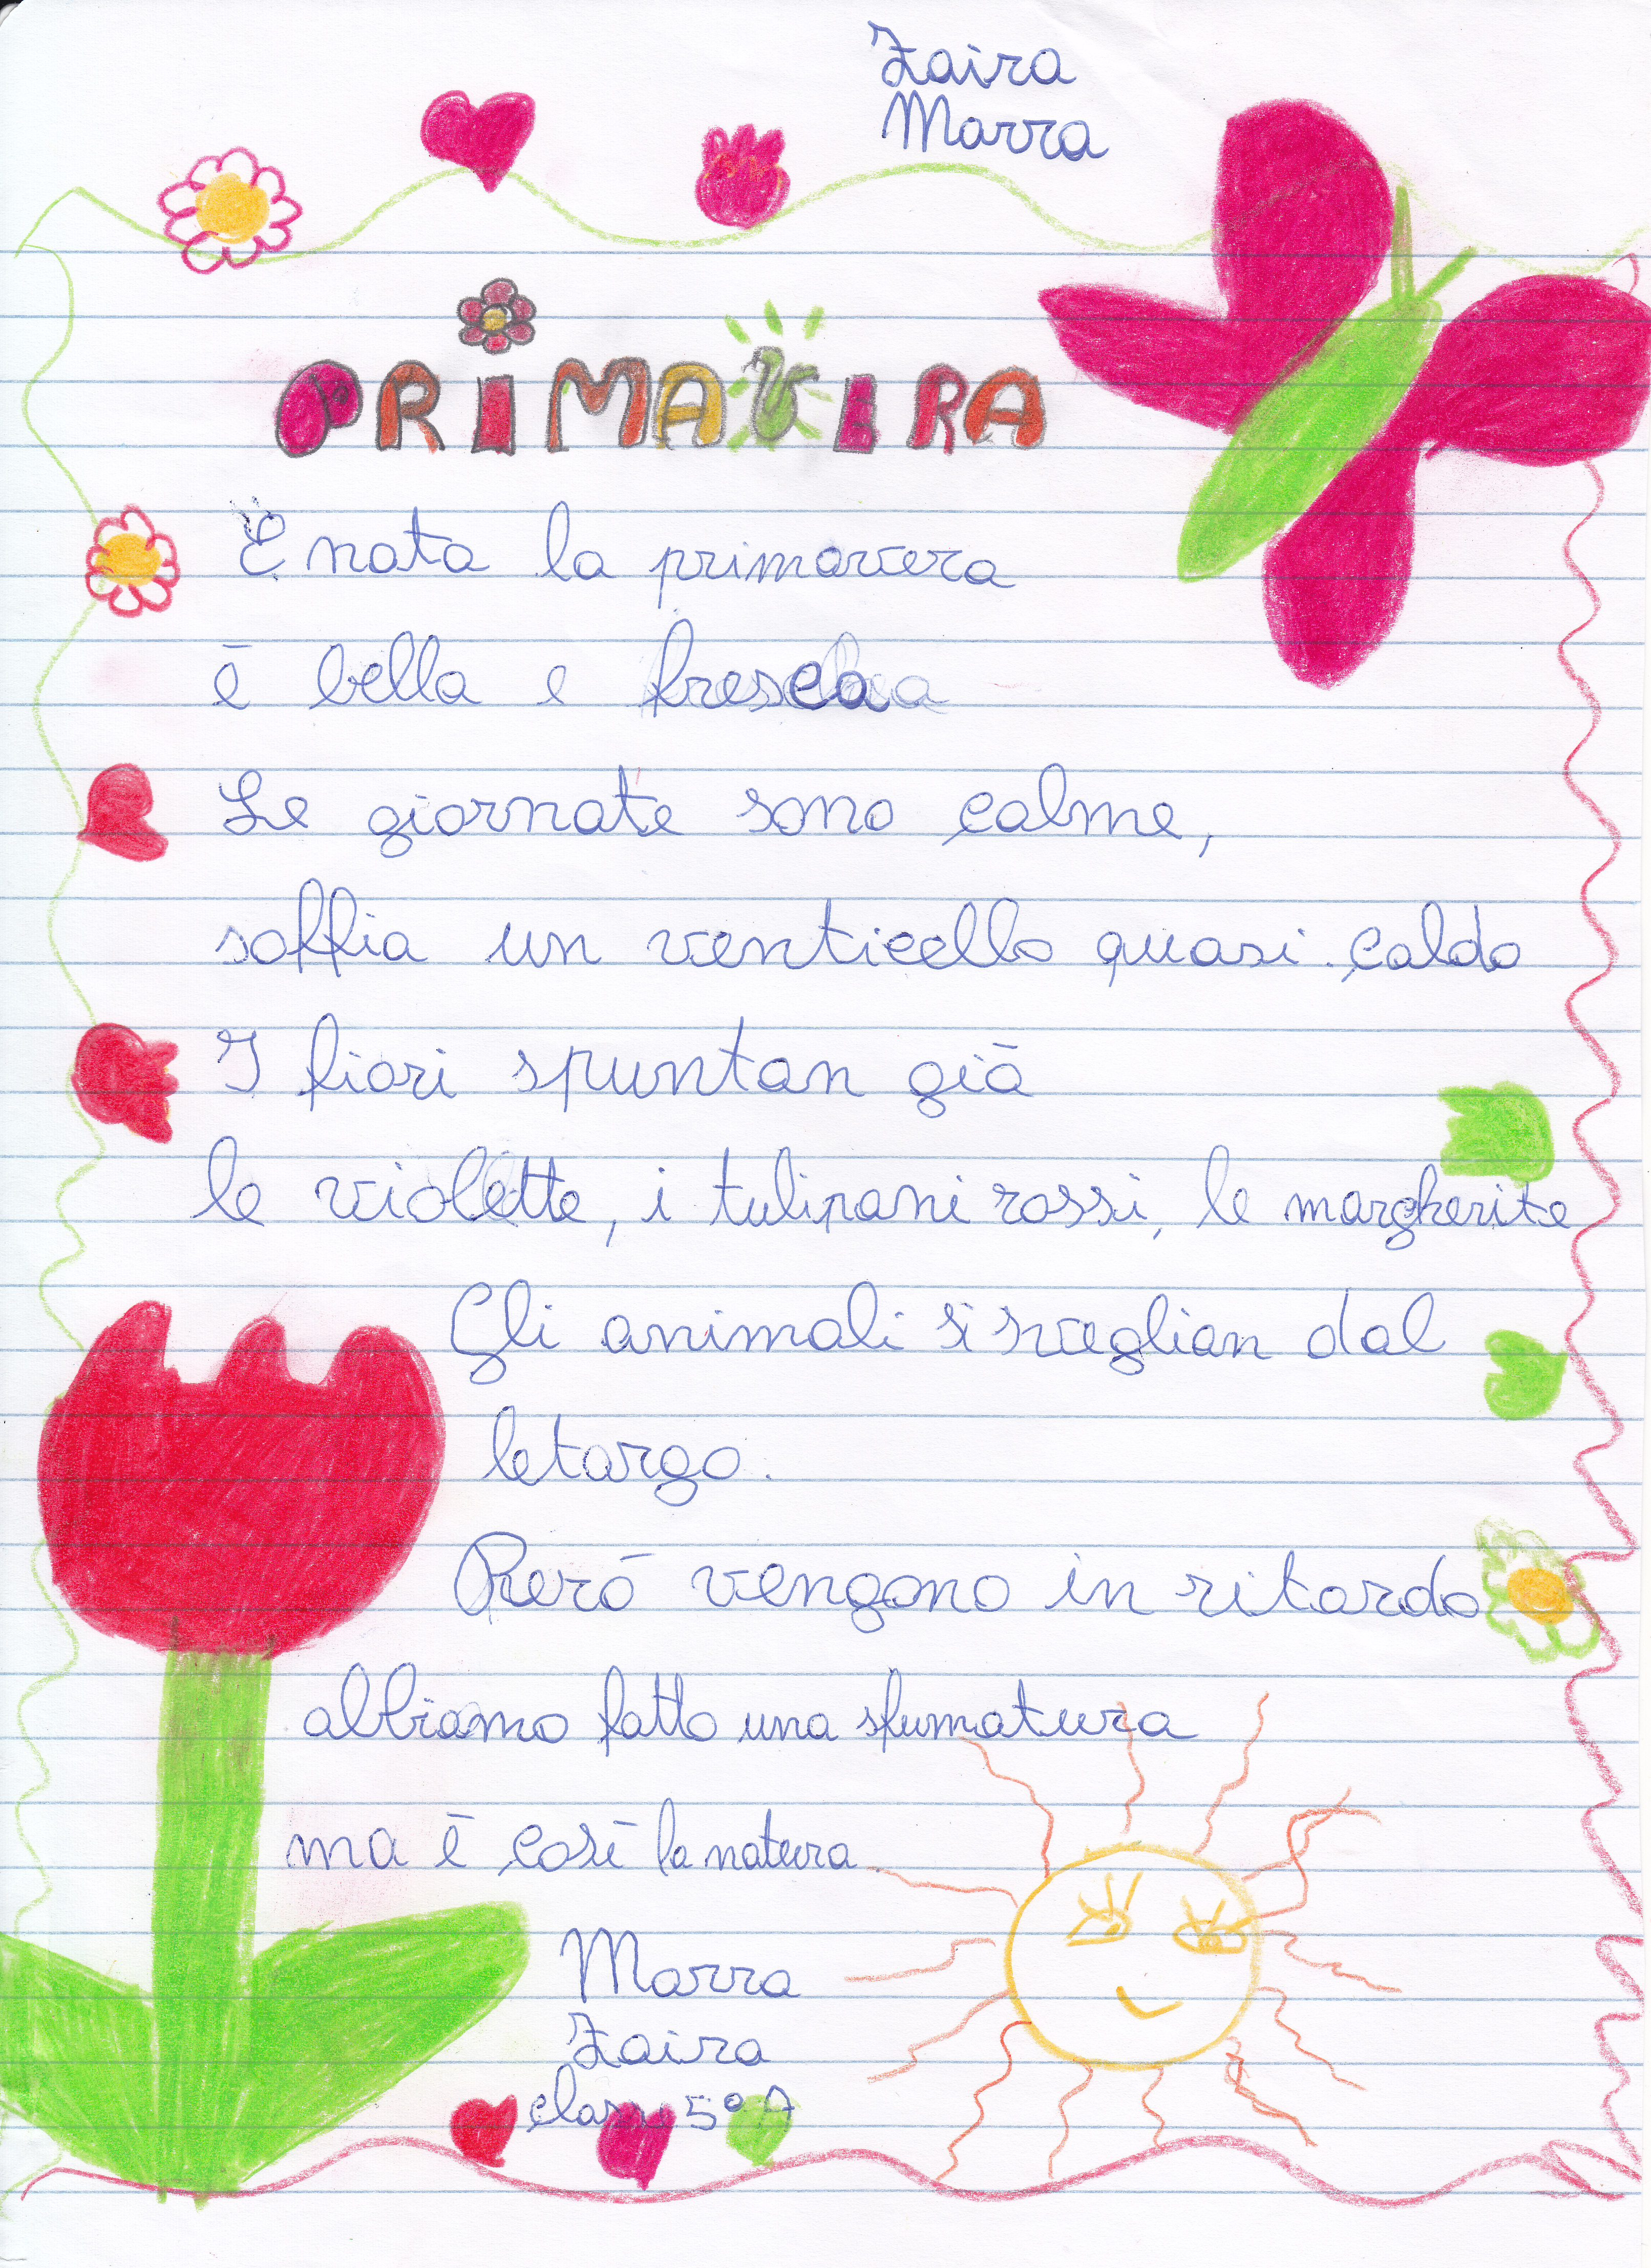 Zaira
Marra
PRIMAVERA
È nata la primavera
è bella e fresca
Le giornate sono calme,
soffia un venticello quasi caldo
I fiori spuntan già
le violette, i tulipani rossi, le margherite
Gli animali si sveglian dal
letargo.
Però vengono in ritardo
abbiamo fatto una sfumatura
ma è così la natura.
Marra
Zaira
classe 5° A